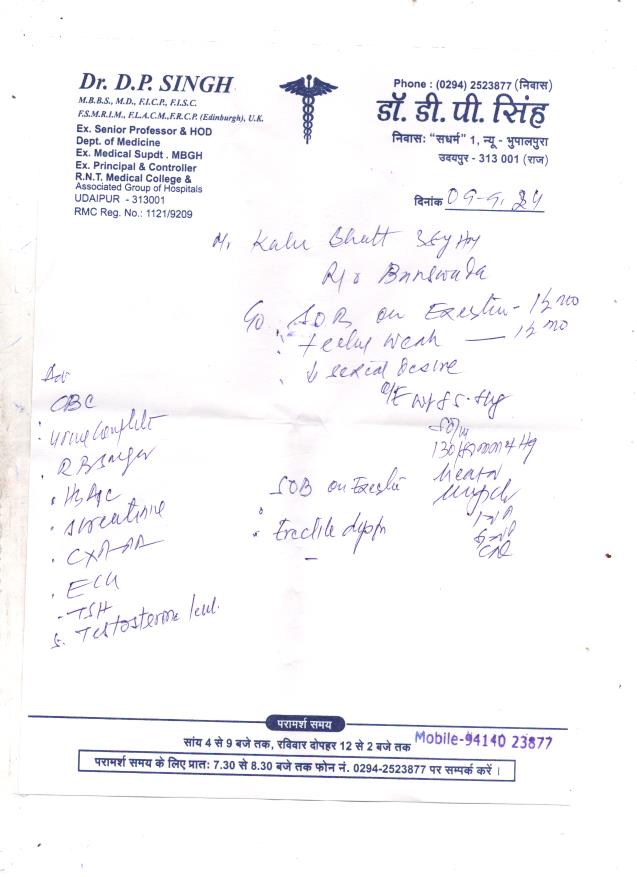 Dr. D.P. SINGH
M.B.B.S., M.D., F.I.C.P., F.I.S.C.
F.S.M.R.I.M., F.L.A.C.M.,F.R.C.P. (Edinburgh), U.K.
Ex. Senior Professor & HOD
Dept. of Medicine
Ex. Medical Supdt . MBGH
Ex. Principal & Controller
R.N.T. Medical College &
Associated Group of Hospitals
UDAIPUR - 313001
RMC Reg. No.: 1121/9209
Phone : (0294) 2523877 (निवास)
डॉ. डी. पी. सिंह
निवासः "सधर्म" 1, न्यू - भुपालपुरा
उदयपुर - 313 001 (राज)
दिनांक 09-9.24
Mr. Kalu Bhatt
R/o Banswada
C/o SOB on Exertion
feeling weak
↓ sexual desire
O/E
130/
SOB on Exertion
Erectile dysfn
Adv
CBC
Urine Complete
R B Sugar
HbA1c
S creatinine
CXR-PA
ECG
TSH
S. Testosterone level.
परामर्श समय
सांय 4 से 9 बजे तक, रविवार दोपहर 12 से 2 बजे तक Mobile-94140 23877
परामर्श समय के लिए प्रातः 7.30 से 8.30 बजे तक फोन नं. 0294-2523877 पर सम्पर्क करें ।